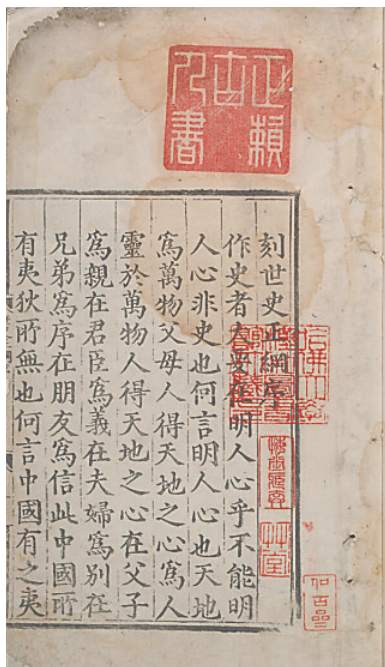 正賴古人書
刻世史正綱序
作史者要在明人心乎不能明
人心非史也何言明人心也天地
爲萬物父母人得天地之心爲人
靈於萬物人得天地之心在父子
爲親在君臣爲義在夫婦爲別在
兄弟爲序在朋友爲信此中國所
有夷狄所無也何言中國有之夷
艸堂